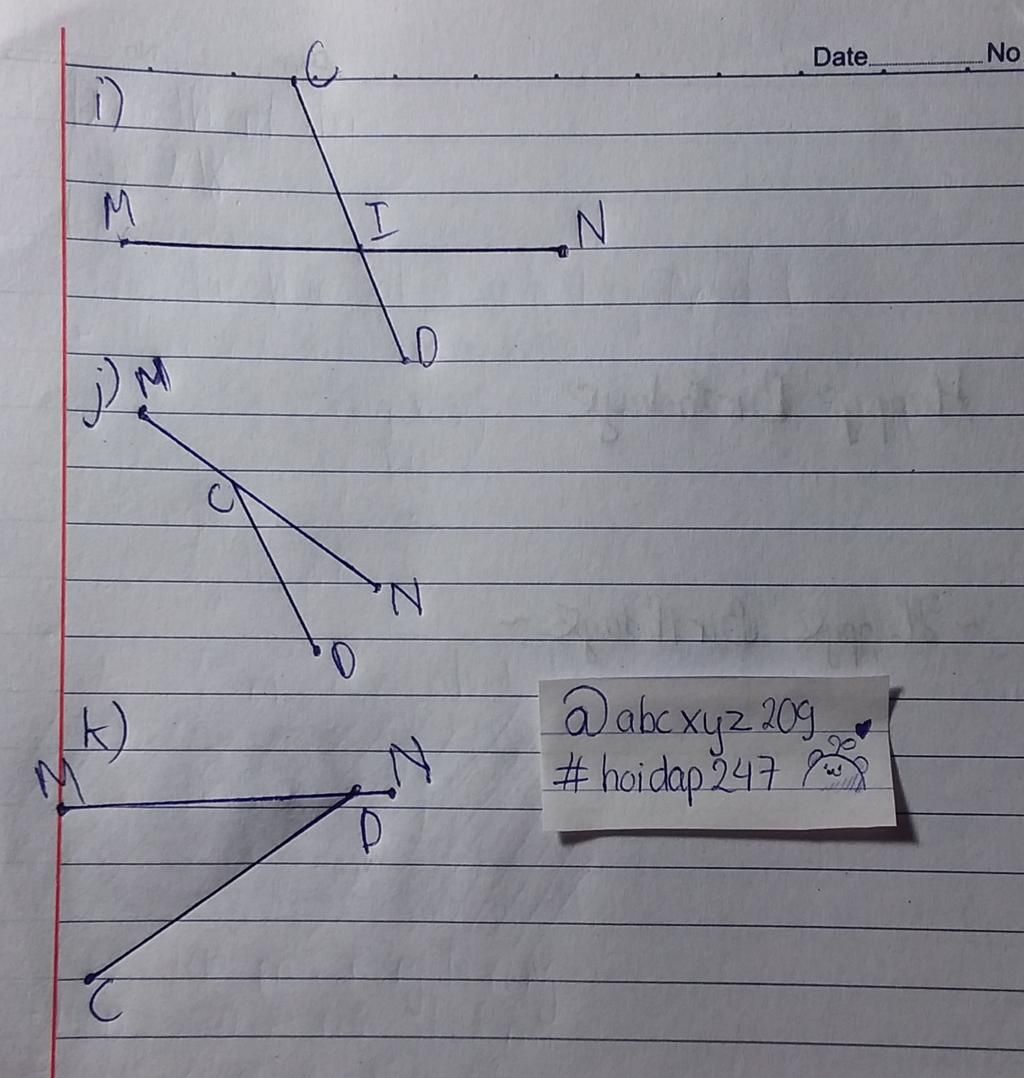 Date No
C
i)
M I N
D
j) M
C
N
D
k)
M N
D
C
@abcxyz209
#hoidap247